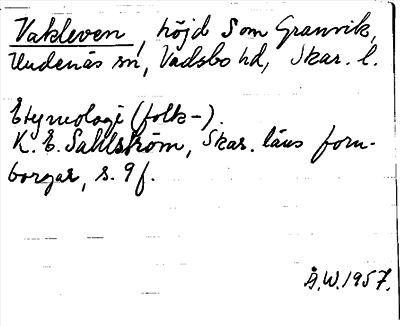 Vakleven, höjd S om Granvik,
Undenäs sn, Vadsbo hd, Skar. l.
Etymologi (folk-).
K. E. Sahlström, Skar. läns forn-
borgar, s. 9 f.
Å.W. 1957.